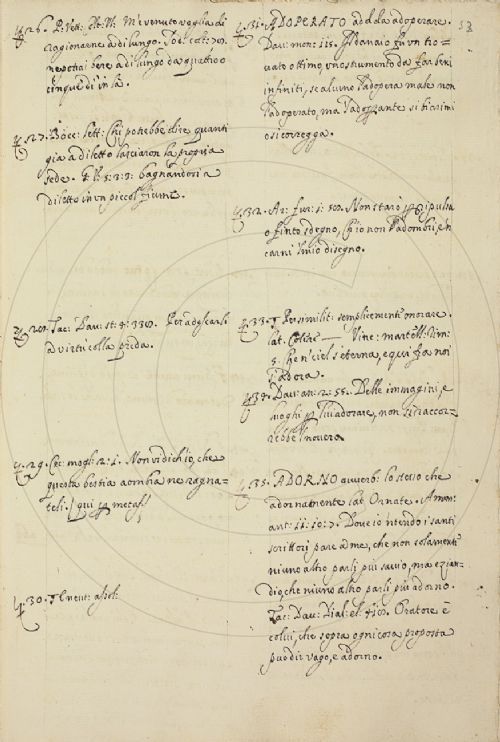 26. P. Vett: M'è venuto voglia di
ragionarne a di lungo.
ne potrai bere a di lungo da quattro o
cinque dì in là.
27. Bocc: lett: Chi potrebbe dire quanti
già a diletto lasciaron la propria
sede. bagnandosi a
diletto in un piccol fiume.
28. Tac: Dav: st: 4: 338. Per adescarli
a virtù colla preda.
29. Cec: mogl: 2: 1. Non vi dich'io, che
questa bestia aombra ne ragna-
teli. qui per metaf.
30. neut: assol:
53
31. ADOPERATO ad da adoperare.
Dav: mon: 115. Il danaio fu un tro-
vato ottimo, uno strumento da far beni
infiniti, se alcuno l'adopera male non
l'adoperato, ma l'adoprante si biasimi
o si corregga.
32. Ar: fur: 1: 50. Non starò per repulsa
o finto sdegno, Ch'io non l'adombri, e'n
carni l mio disegno.
33. Per similit: semplicemente onorare.
lat. Colere — Vine: martell: rim:
5. Che'n ciel s'eterna, e qui fra noi
l'adora.
34. Dav: an: 2: 55. Delle immagini, e
luoghi per lui adorare, non si raccor-
rebbe l novero.
35. ADORNO avverb: lo stesso che
adornatamente lat. Ornate. Amm:
ant: 11: 10: 7. Dove io intendo i santi
scrittori pare a me, che non solamente
niuno altro parli più savio, ma ezian-
dio, che niuno altro parli più adorno.
Tac: Dav: Dial: el: 408. Oratore è
colui, che sopra ogni cosa proposta
può dir vago, e adorno.